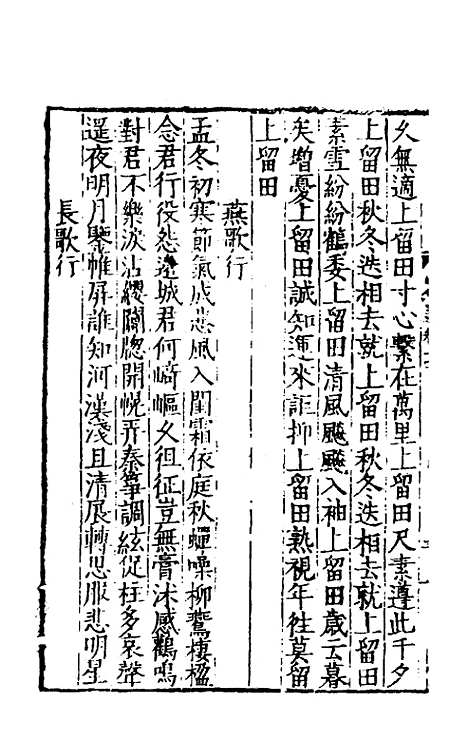 久無適上留田寸心繫在萬里上留田尺素遵此千夕
上留田秋冬迭相去就上留田秋冬迭相去就上留田
素雪紛紛鶴委上留田清風飈飈入袖上留田歲云暮
矣增憂上留田誠知運來詎抑上留田熟視年徃莫留
上留田
燕歌行
孟冬初寒節氣成悲風入閨霜依庭秋蟬噪柳鷰棲楹
念君行役怨邊城君何崎嶇久徂征豈無膏沐感鸛鳴
對君不樂淚沾纓闢牕開幌弄秦箏調絃促柱多哀聲
遥夜明月鑒帷屏誰知河漢淺且清展轉思服悲明星
長歌行